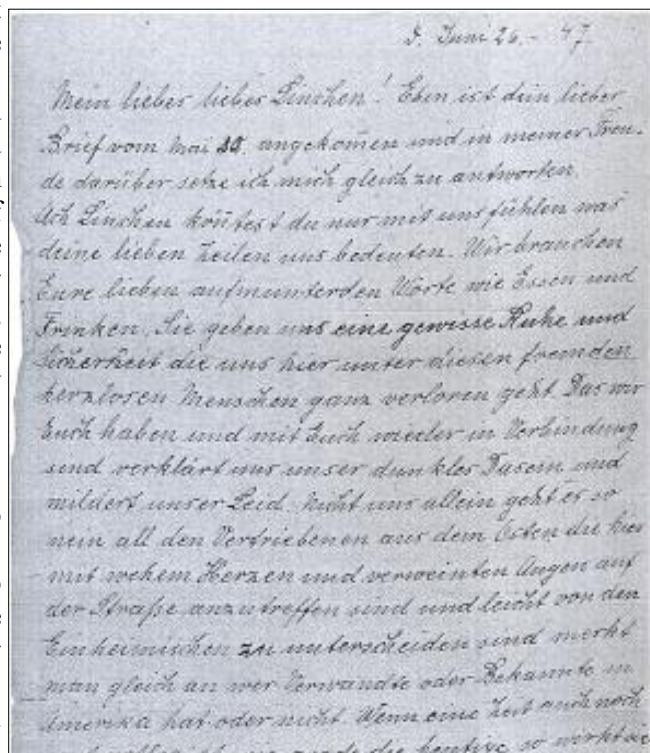 d. Juni 26. - 47.
Mein lieber lieber Linchen! Eben ist dein lieber
Brief vom Mai 20. angekommen und in meiner Freu-
de darüber setze ich mich gleich zu antworten.
Ach Linchen kön̄test du nur mit uns fühlen was
deine lieben Zeilen uns bedeuten. Wir brauchen
Eure lieben aufmunterden Worte wie Essen und
Trinken. Sie geben uns eine gewisse Ruhe und
Sicherheit die uns hier unter diesen fremden
herzlosen Menschen ganz verloren geht. Das wir
Euch haben und mit Euch wieder in Verbindung
sind verklärt uns unser dunkles Dasein und
mildert unser Leid. Nicht uns allein geht es so
nein all den Vertriebenen aus dem Osten die hier
mit wehem Herzen und verweinten Augen auf
der Straße anzutreffen sind und leicht von den
Einheimischen zu unterscheiden sind merkt
man gleich an wer Verwandte oder Bekannte in
Amerika hat oder nicht. Wenn eine Zeit auch noch
die heutige so